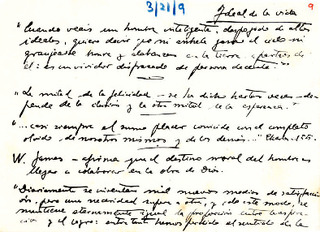 3/21/9
9
Ideal de la vida
"Cuando veáis un hombre inteligente, despojado de altos
ideales, quiere decir que ni anhela ganar el cielo ni
granjearse honra y alabanzas en la tierra apartaos de
él: es un vividor disfrazado de persona decente."
"La mitad de la felicidad – se ha dicho hartas veces – de-
pende de la ilusión y la otra mitad de la esperanza."
"... casi siempre el sumo placer coincide con el completo
olvido de nosotros mismos y de los demás..."
W. James – afirma que el destino moral del hombre es
llegar a colaborar en la obra de Dios.
"Diariamente se inventan mil nuevos medios de satisfac-
ción, pero una necesidad supera otra, y de este modo, se
mantiene eternamente igual la proporción entre la aspira-
ción y el logro: entretanto hemos perdido el sentido de la